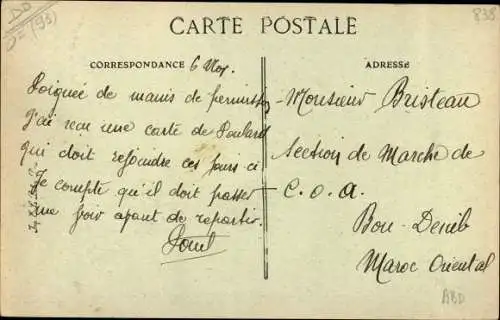 DD
(93)
838
CARTE POSTALE
CORRESPONDANCE 6 Nov.
ADRESSE
Poignée de mains de permission
J'ai reçu une carte de Poulard
qui doit rejoindre ces jours-ci
Je compte qu'il doit passer
me voir avant de repartir.
Monsieur Bristeau
Section de Marche de
C.O.A.
Bou-Denib
Maroc Oriental
ABD